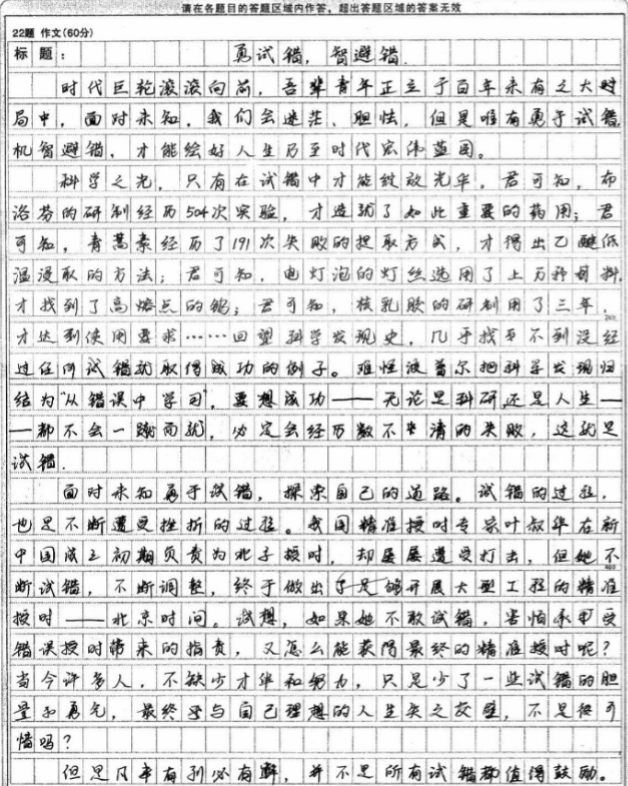 请在各题目的答题区域内作答，超出答题区域的答案无效
22题 作文(60分)
标题： 勇试错，智避错.
时代巨轮滚滚向前，吾辈青年正立于百年未有之大时
局中，面对未知，我们会迷茫、胆怯，但是唯有勇于试错
机智避错，才能绘好人生乃至时代宏伟蓝图。
科学之光，只有在试错中才能绽放光华。君可知，布
洛芬的研制经历504次实验，才造就了如此重要的药用；君
可知，青蒿素经历了191次失败的提取方式，才得出乙醚低
温浸取的方法；君可知，电灯泡的灯丝选用了上万种材料，
才找到了高熔点的钨；君可知，核乳胶的研制用了三年，
才达到使用要求……回望科学发现史，几乎找寻不到没经
过任何试错就取得成功的例子。难怪波普尔把科学发现归
结为“从错误中学习”，要想成功——无论是科研还是人生—
—都不会一蹴而就，必定会经历数不清的失败，这就是
试错.
面对未知勇于试错，探索自己的道路。试错的过程，
也是不断遭受挫折的过程。我国精准授时专家叶叔华在新
中国成立初期负责为北子授时，却屡屡遭受打击，但她不
断试错，不断调整，终于做出了足够开展大型工程的精准
授时——北京时间。试想，如果她不敢试错，害怕承受
错误授时带来的指责，又怎么能获得最终的精准授时呢？
当今许多人，不缺少才华和努力，只是少了一些试错的胆
量和勇气，最终与自己理想的人生失之交臂，不是很可
惜吗？
但是凡事有利必有弊，并不是所有试错都值得鼓励。